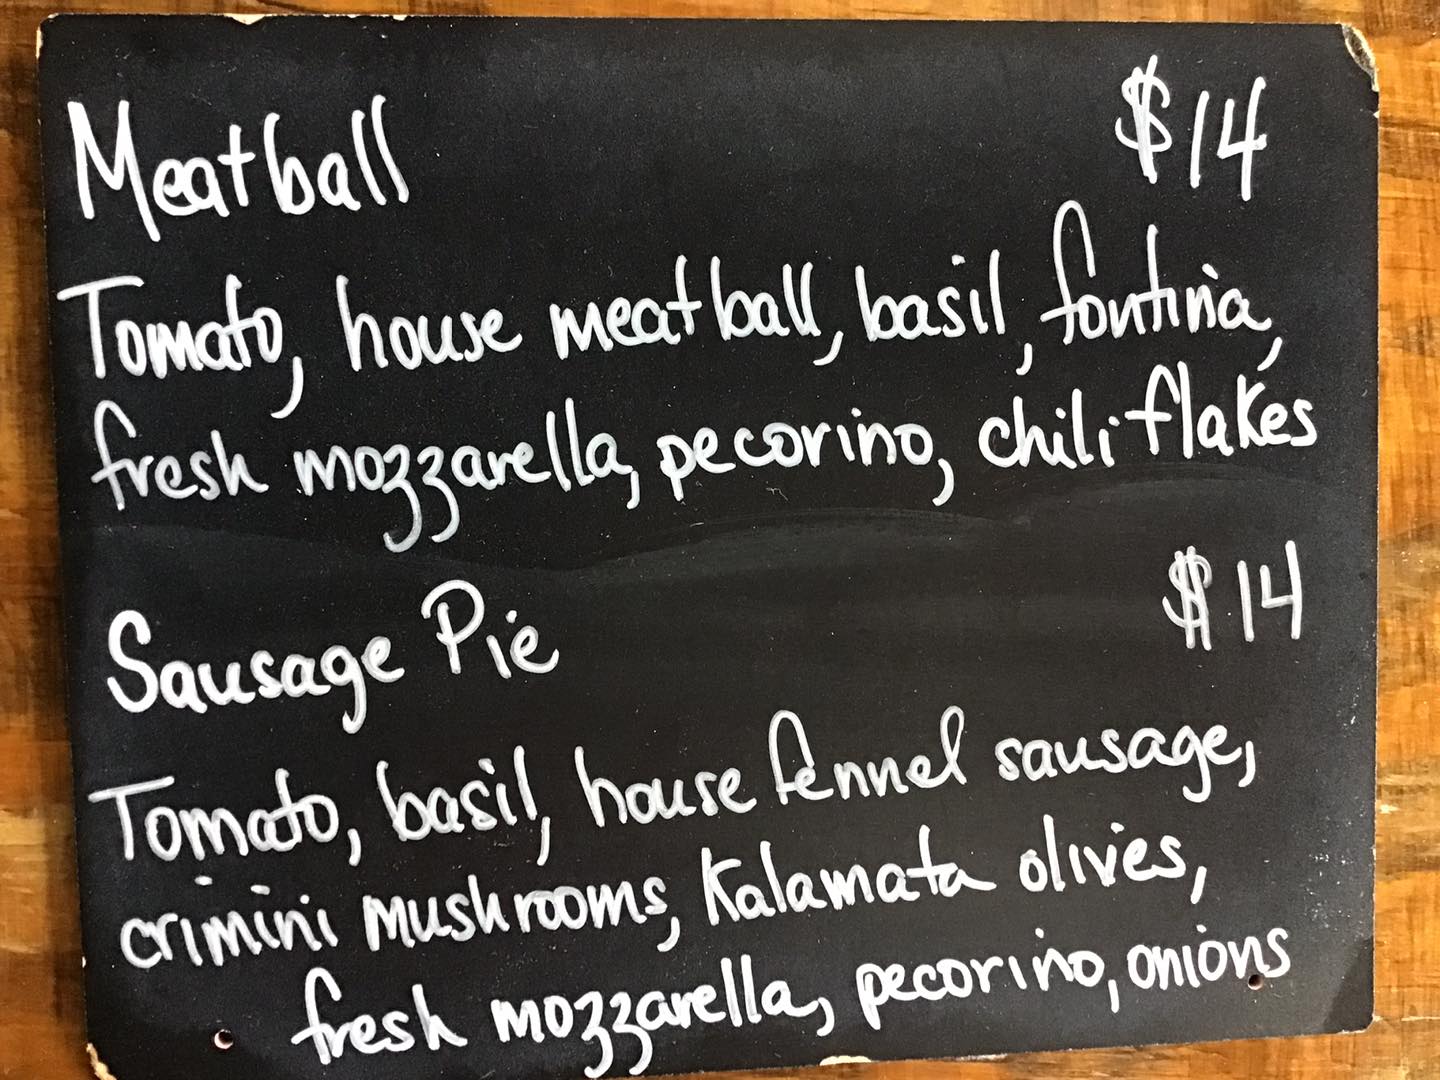 Meatball $14
Tomato, house meatball, basil, fontina,
fresh mozzarella, pecorino, chili flakes
Sausage Pie $14
Tomato, basil, house fennel sausage,
crimini mushrooms, Kalamata olives,
fresh mozzarella, pecorino, onions